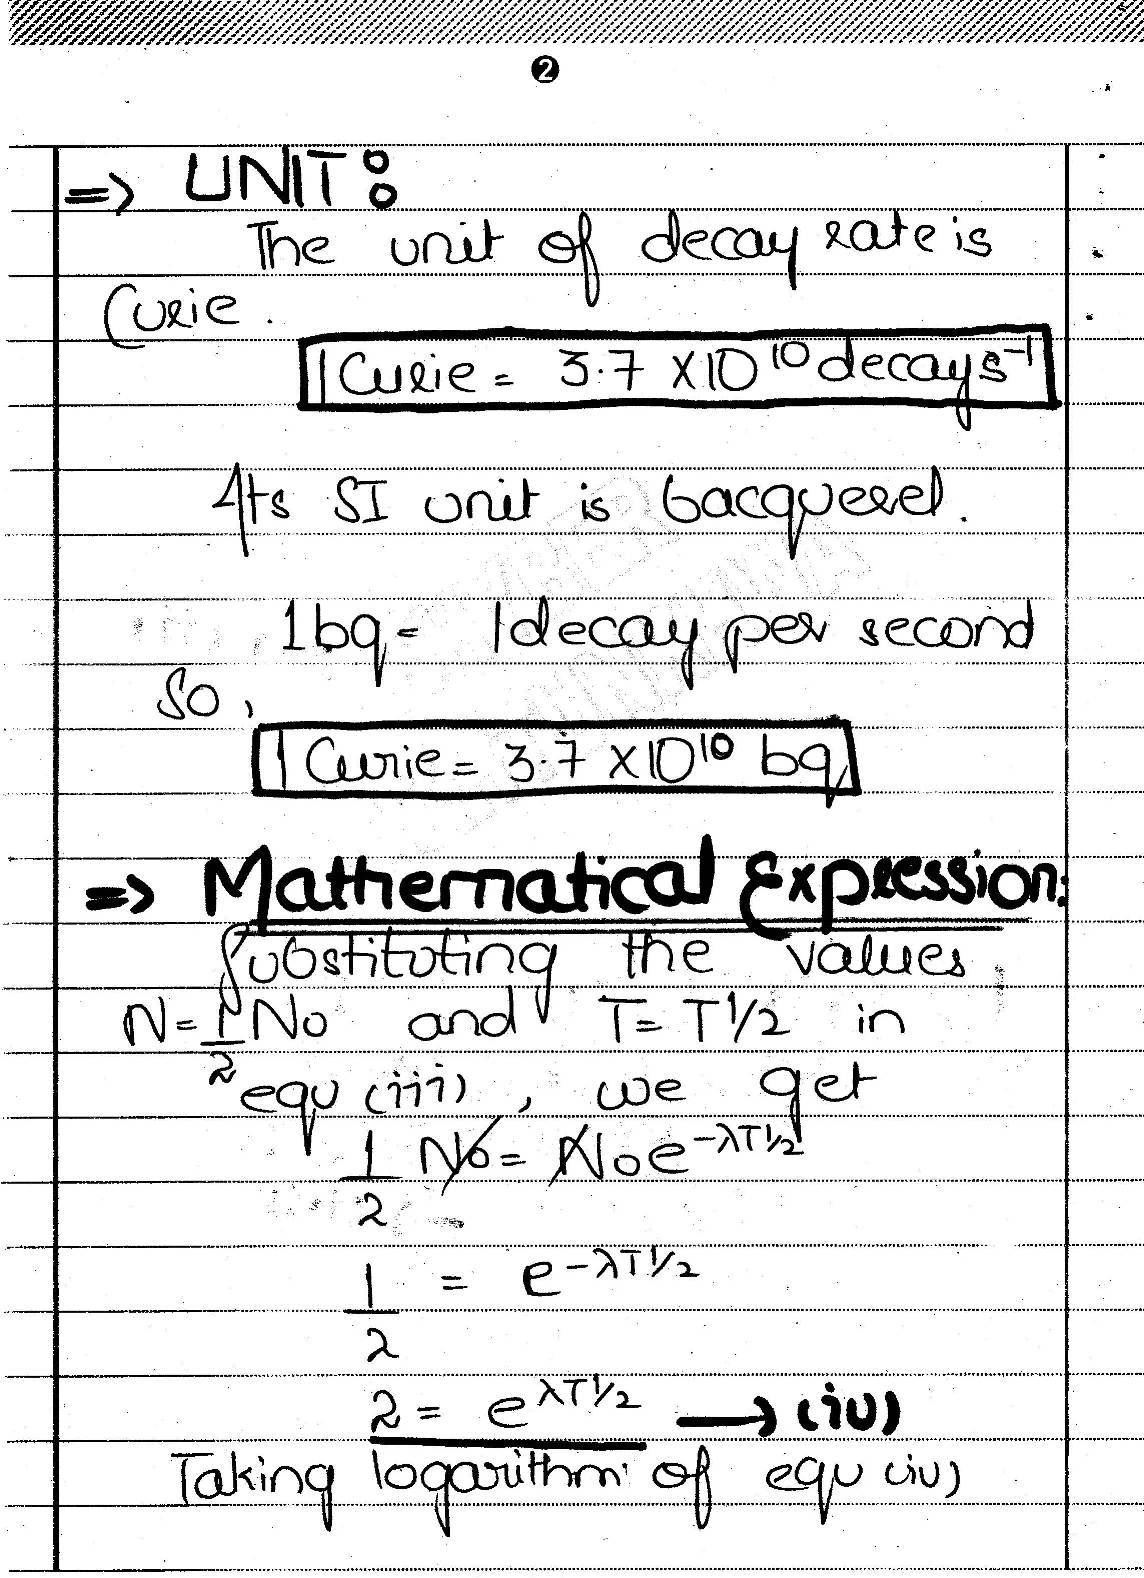 2
=> UNIT:
The unit of decay rate is
Curie.
1 Curie = 3.7 X10¹⁰ decay s⁻¹
Its SI unit is bacquerel.
1bq = 1decay per second
So,
1 Curie = 3.7 X10¹⁰ bq
=> Mathematical Expression:
Substituting the values
N = 1/2 No and T = T1/2 in
equ (iii), we get
1/2 No = Noe^-λT1/2
1/2 = e^-λT1/2
2 = e^λT1/2 → (iv)
Taking logarithm of equ (iv)